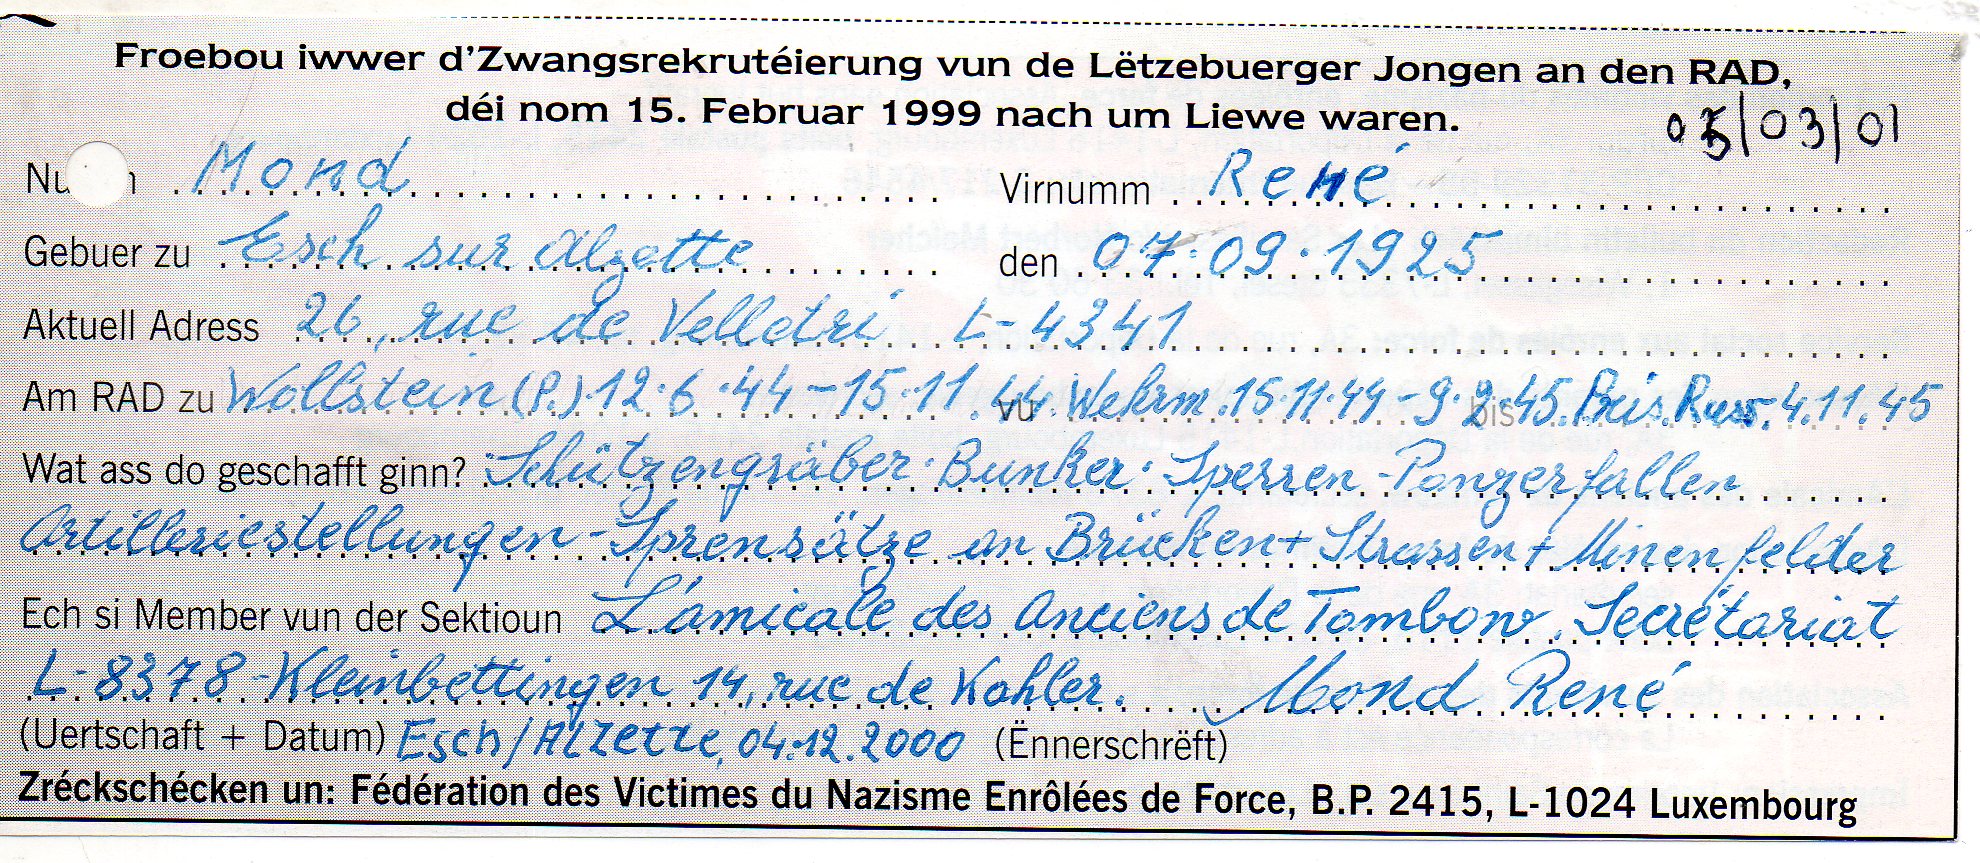 Froebou iwwer d'Zwangsrekrutéierung vun de Lëtzebuerger Jongen an den RAD,
déi nom 15. Februar 1999 nach um Liewe waren.
05/03/01
Mond Virnumm René
Gebuer zu Esch sur Alzette den 07.09.1925
Aktuell Adress 26, rue de Velletri L-4341
Am RAD zu Wollstein (P.) 12.6.44-15.11.44 vu Wehrm. 15.11.44-9.2.45 bis Pris. Russ. 4.11.45
Wat ass do geschafft ginn? Schützengräber. Bunker. Sperren-Panzerfallen
Artilleriestellungen-Sprensätze an Brücken + Strassen + Minenfelder
Ech si Member vun der Sektioun L'amicale des Anciens de Tambow. Secrétariat
L-8378-Kleinbettingen 14, rue de Kahler. Mond René
(Uertschaft + Datum) Esch/Alzette, 04.12.2000 (Ënnerschrëft)
Zréckschécken un: Fédération des Victimes du Nazisme Enrôlées de Force, B.P. 2415, L-1024 Luxembourg